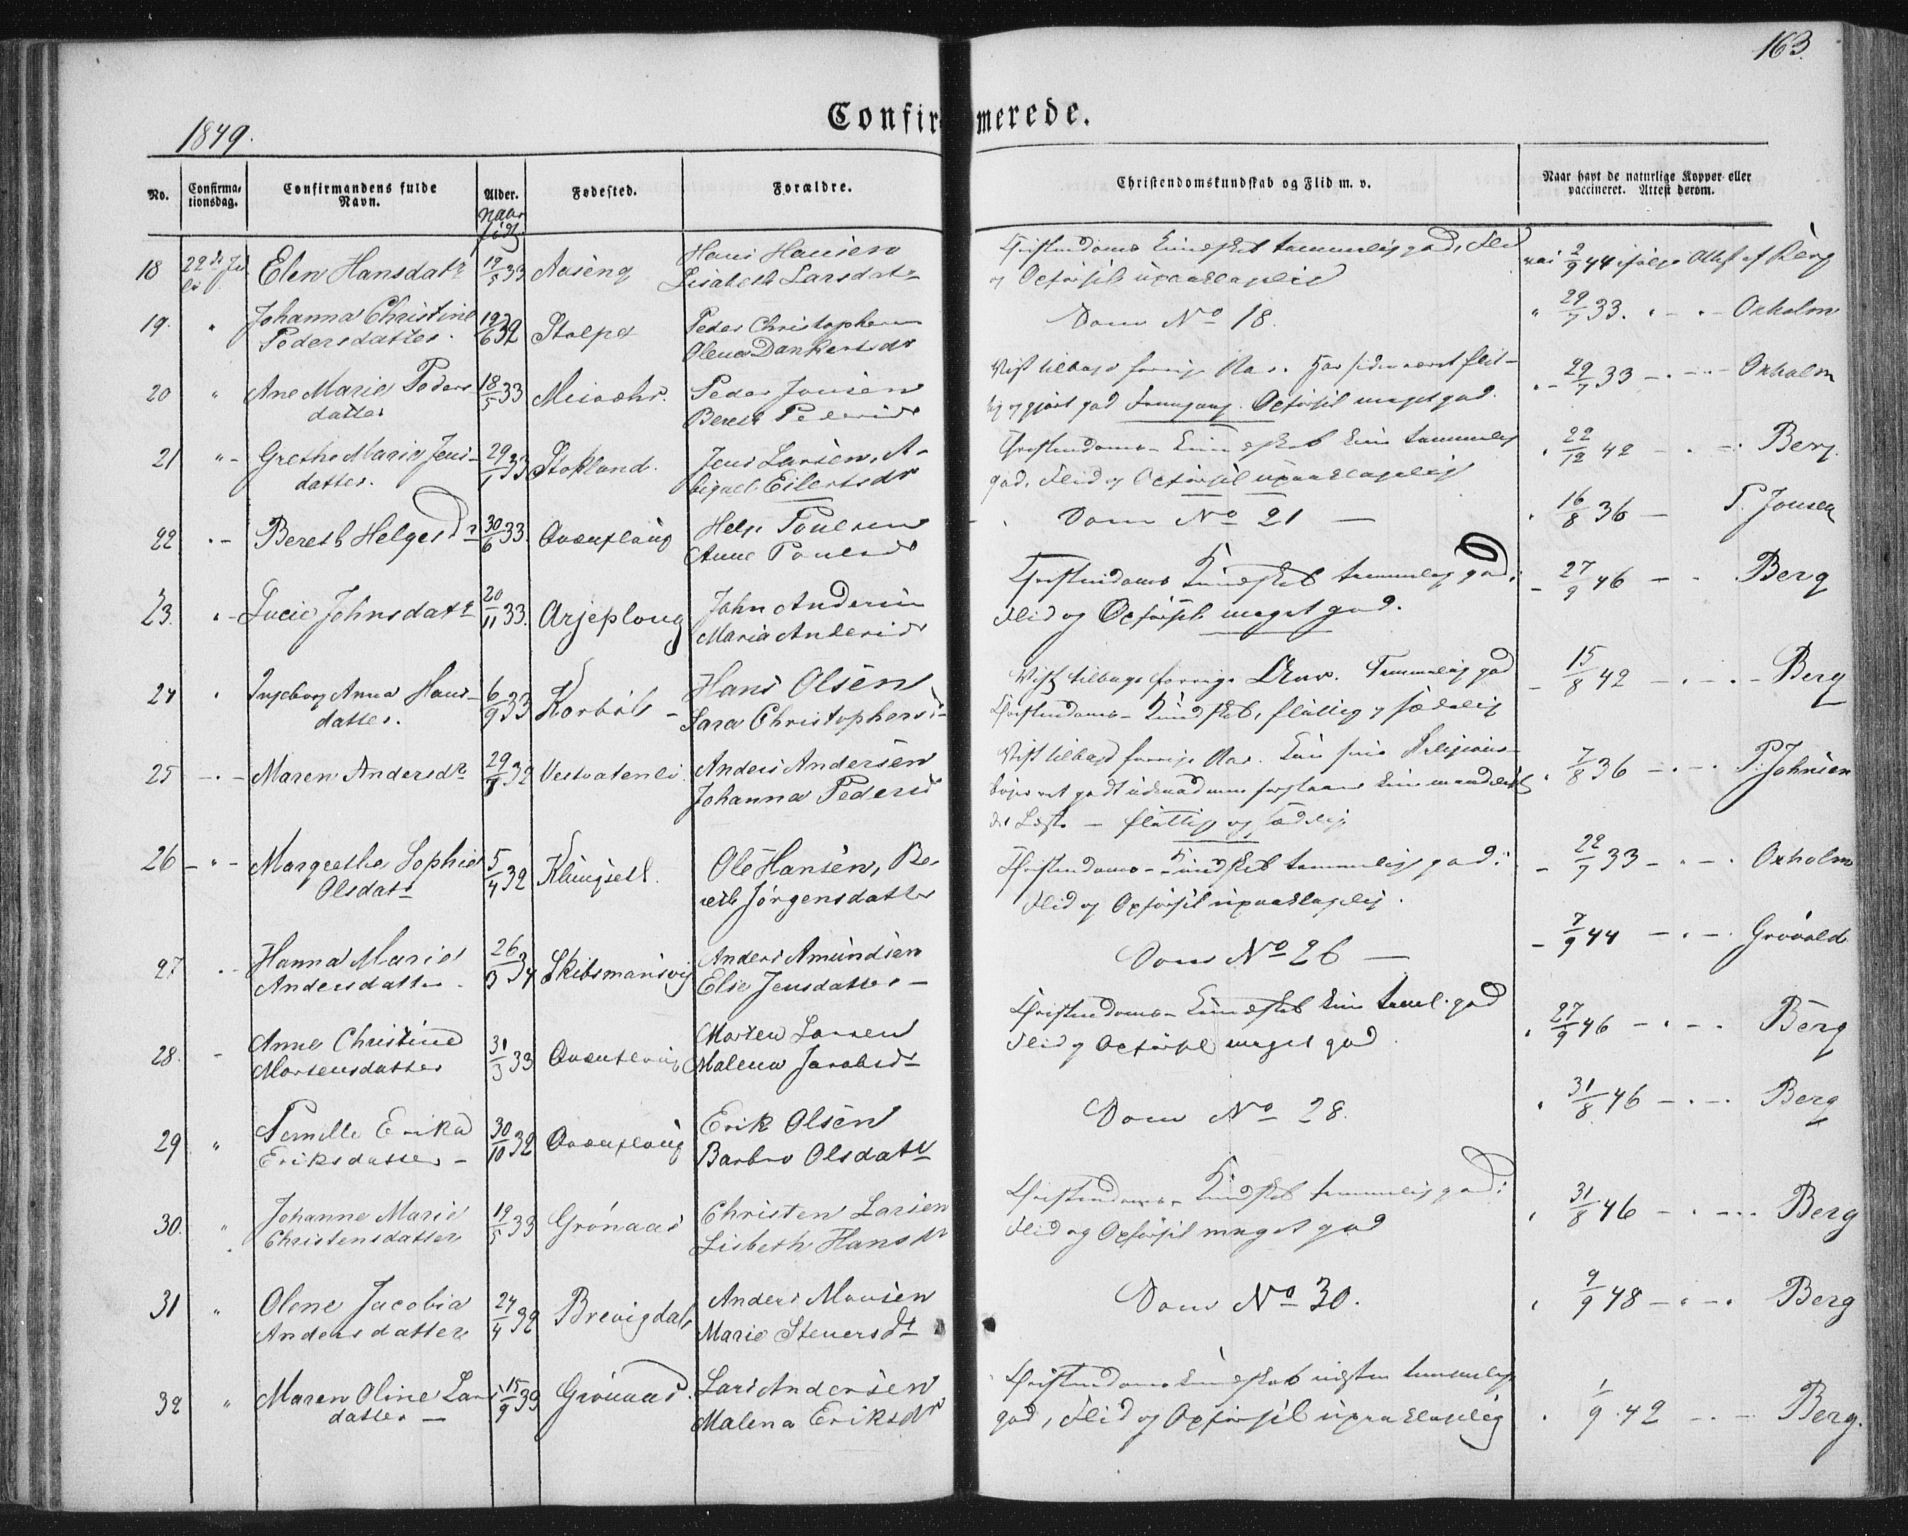 163.
Confirmerede.
1849.
No.
Confirmationsdag.
Confirmandens fulde Navn.
Alder.
naar født
Fødested.
Forældre.
Christendomskundskab og Flid m. v.
Naar havt de naturlige Kopper eller vaccineret. Attest derom.
18 22de Juli Elen Hansdatr 19/5 33 Aaseng Hans Hansen
Lisabeth Larsdatr
Christendoms Kundskab temmelig god, Flid
og Opførsel upaaklagelig
vac 2/9 44 ifølge Attest af Berg
19. " Johanna Christine
Pedersdatter. 19/6 32 Stolpe Peder Christophersen
Olena Dankertsdr
Som No 18.
" 29/7 33. " - " - Oxholm
20 " Ane Marie Peders
datter 18/5 33 Peder Jensen
Bereth Pedersdr
Vist tilbage forrige Aar. Har siden været flit-
tig og gjort god Fremgang. Opførsel meget god.
" - 29/7 33 - " - Oxholm
21 " - Grethe Marie Jens-
datter. 29/1 33 Stokland. Jens Larsen, A-
bigael Eilertsdr
Christendoms-Kundskab kun temmelig
god, Flid og Opførsel upaaklagelig
" 22/12 42 - " - Berg.
22 " - Bereth Helgesdr 30/6 33. Helge Poulsen
Anne Poulsdr
Som No 21 -
" 16/8 36 - P. Jonsen
23. " - Lucie Johnsdatr 20/11 33. Arjeploug John Andersen
Maria Andersdr
Christendoms Kundskab temmelig god;
Flid og Opførsel meget god.
- 27/9 46 - - Berg
24 " Ingeborg Anna Hans-
datter. 6/9 33 Hans Olsen
Sara Christophersd-
Vist tilbage forrige Aar. Temmelig god
Christendoms-Kundskab, flittig og sædelig
- 15/8 42 - " - Berg
25 - " - Maren Andersdr 29/8 32 Vestvatenli Anders Andersen
Johanna Pedersd
Vist tilbage forrige Aar. Kan sine Religions-
bøger ret godt udenad men forstaaer kun maadeligt
det Læste - flittig og sædelig
" 7/8 36 - " - P. Johnsen
26 - " - Margrethe Sophie
Olsdatr 5/4 32 Klungset. Ole Hansen, Be-
reth Jørgensdatter
Christendoms-Kundskab temmelig god;
Flid og Opførsel upaaklagelig.
- 22/7 33 - " - Oxholm
27 " - Hanna Marie
Andersdatter 26/3 34 Skibsmansvig Anders Amundsen
Else Jensdatter -
Som No 26 -
- 7/9 44 - " -
28. - Anne Christine
Mortensdatter 31/3 33 Morten Larsen
Malena Jacobsdr
Christendoms-Kundskab kun teml. god
Flid og Opførsel meget god.
" 27/9 46 - " - Berg
29 " Pernille Erika
Eriksdatter - 30/10 32 Erik Olsen
Barbro Olsdatr
Som No 28.
" 31/8 46 - " - Berg
30. " Johanne Marie
Christensdatter 19/5 33 Grønaas Christen Larsen
Lisbeth Hansdr
Christendoms-Kundskab temmelig god;
Flid og Opførsel meget god
" 31/8 46 - " - Berg
31 " Olene Jacobia
Andersdatter 24/4 32 Brevigdal Anders Monsen
Marie Steversdt
Som No 30.
" 9/9 48 - " - Berg
32 " Maren Oline Lars-
datter - 15/9 33 Grønaas. Lars Andersen
Malena Eriksdr
Christendomskundskab næsten temmelig
god, Flid og Opførsel upaaklagelig
" 1/9 42 - - Berg.